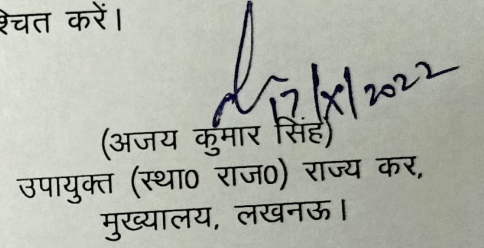 श्चित करें।
17/X/2022
(अजय कुमार सिंह)
उपायुक्त (स्था0 राज0) राज्य कर,
मुख्यालय, लखनऊ।